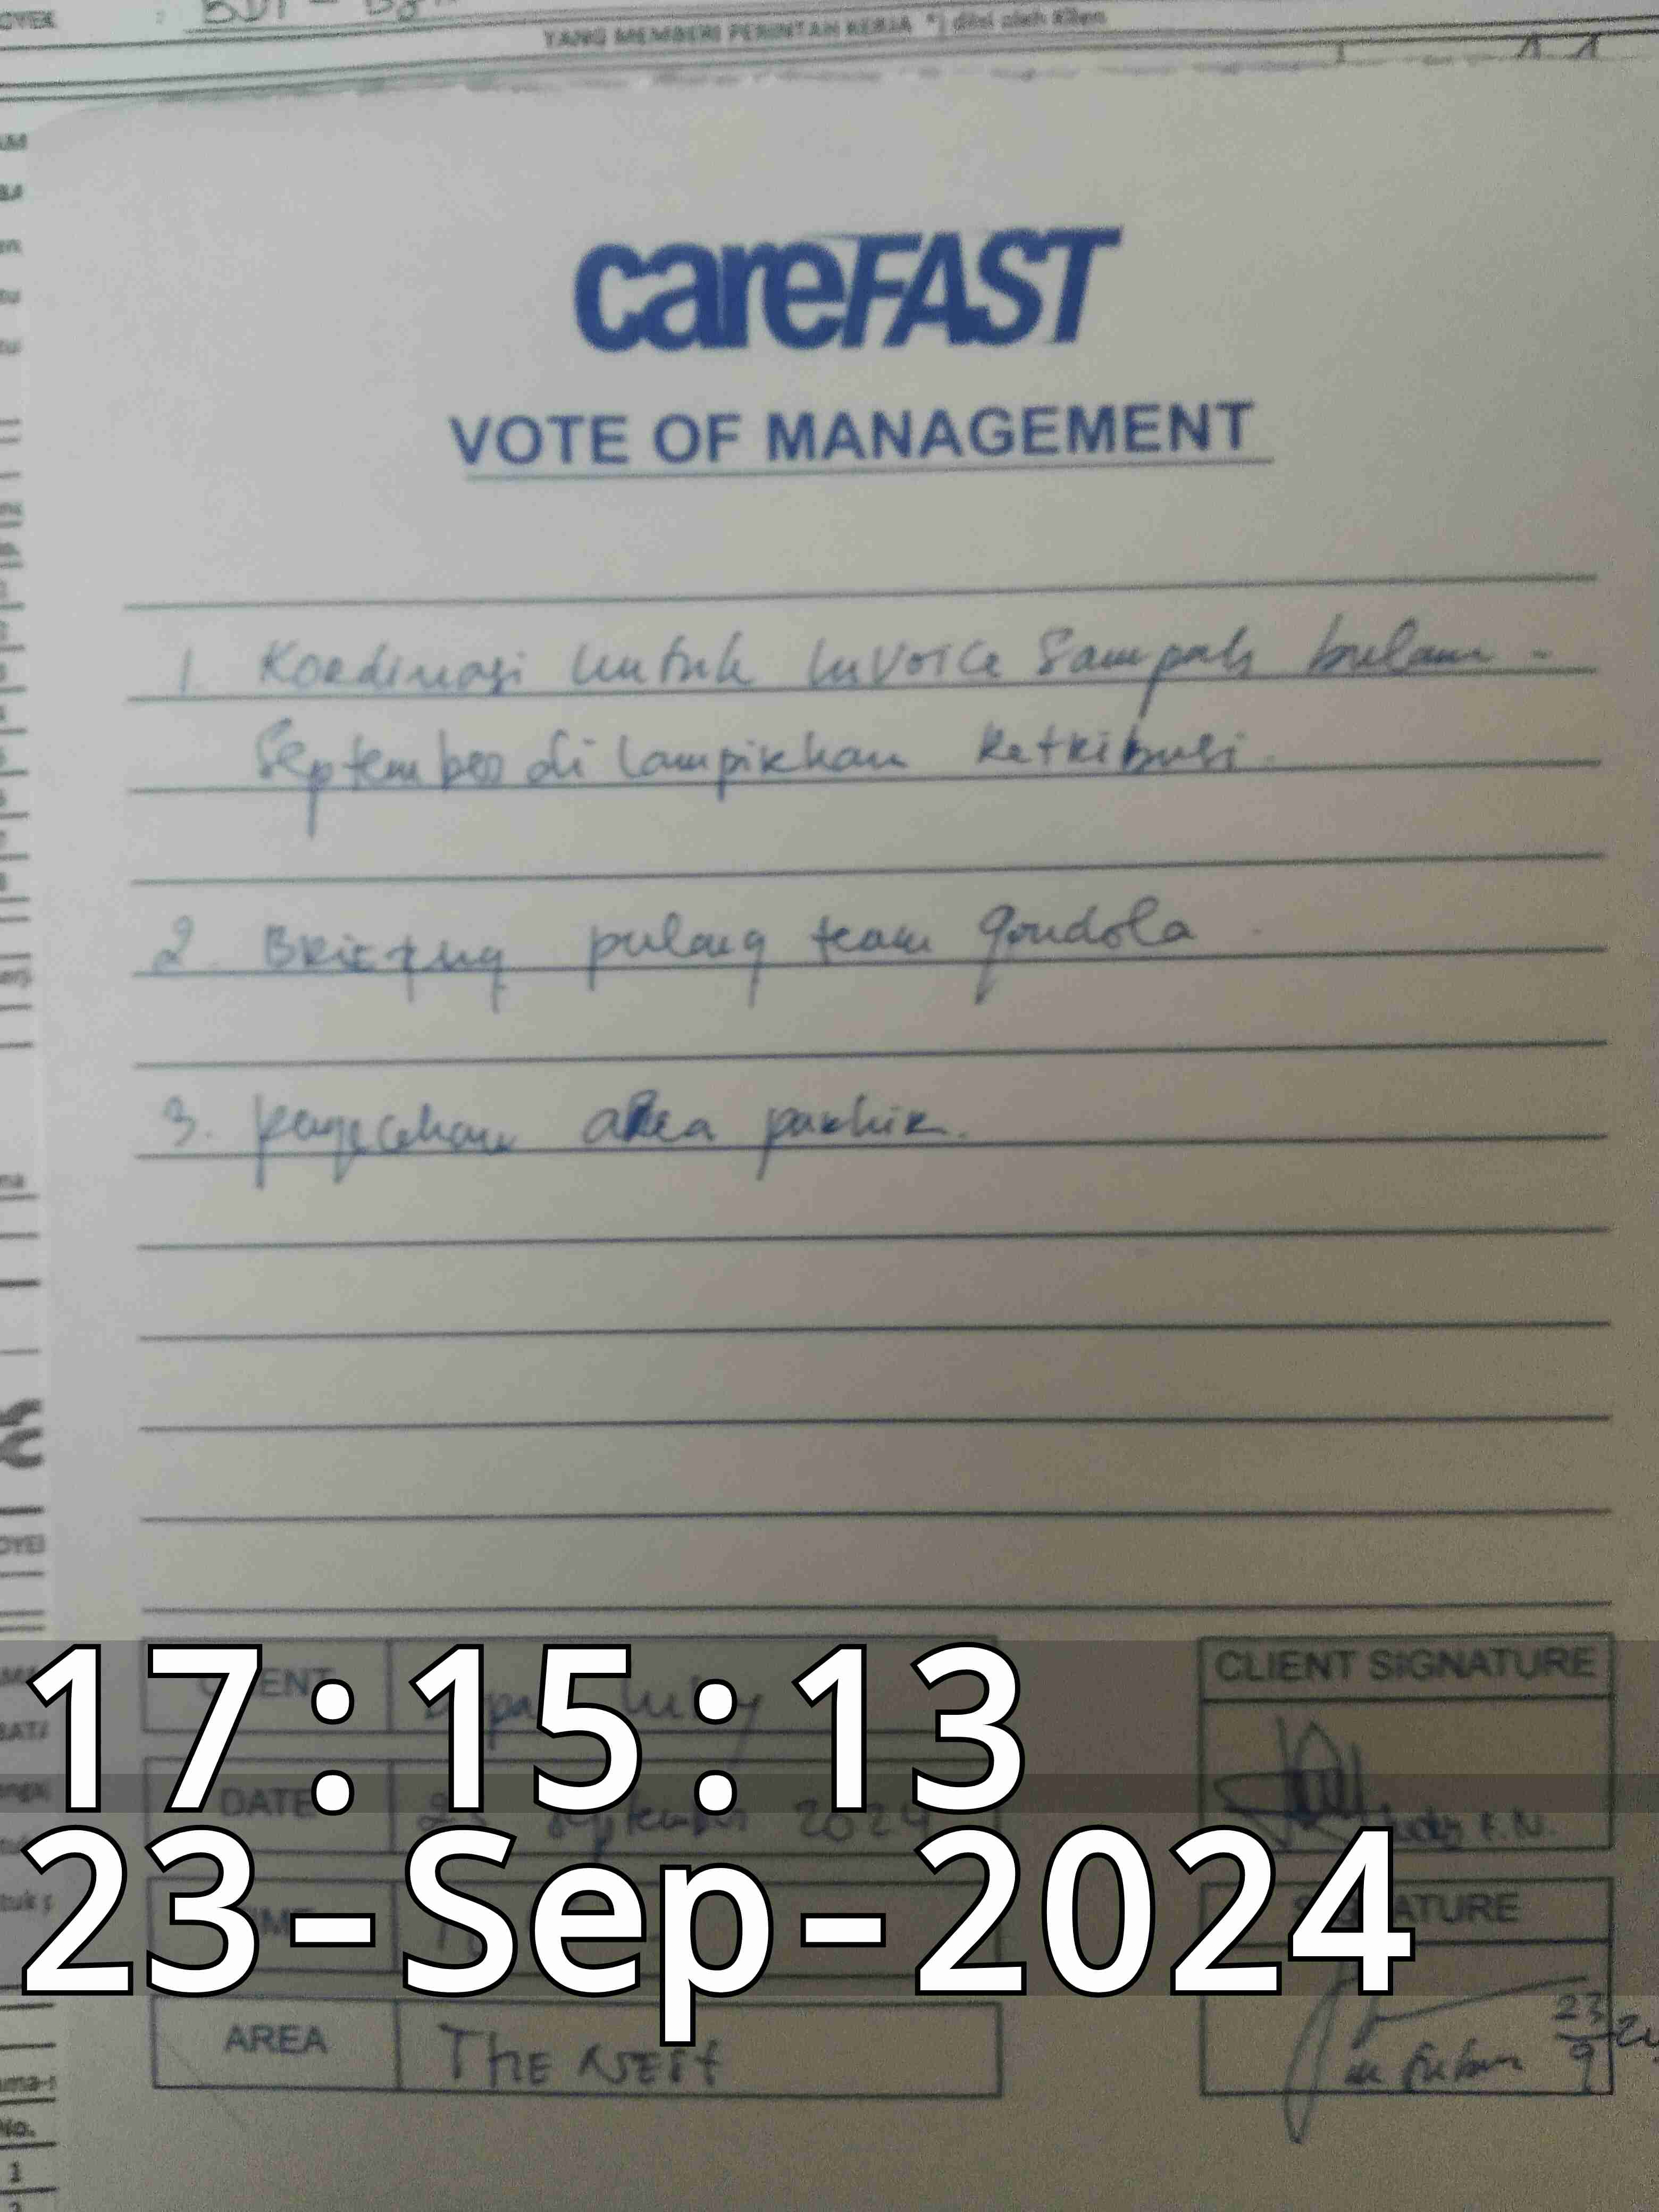 YANG MEMBERI PERINTAH KERJA *) diisi oleh Klien
careFAST
VOTE OF MANAGEMENT
1. Koordinasi untuk Invoice Sampah bulan -
September di lampirkan Retribusi.
2. Briefing pulang team gondola
3. pengecekan area parkir.
CLIENT SIGNATURE
17:15:13
DATE
23 September 2024
23-Sep-2024
SIGNATURE
AREA
The NEST
23
9
No.
1